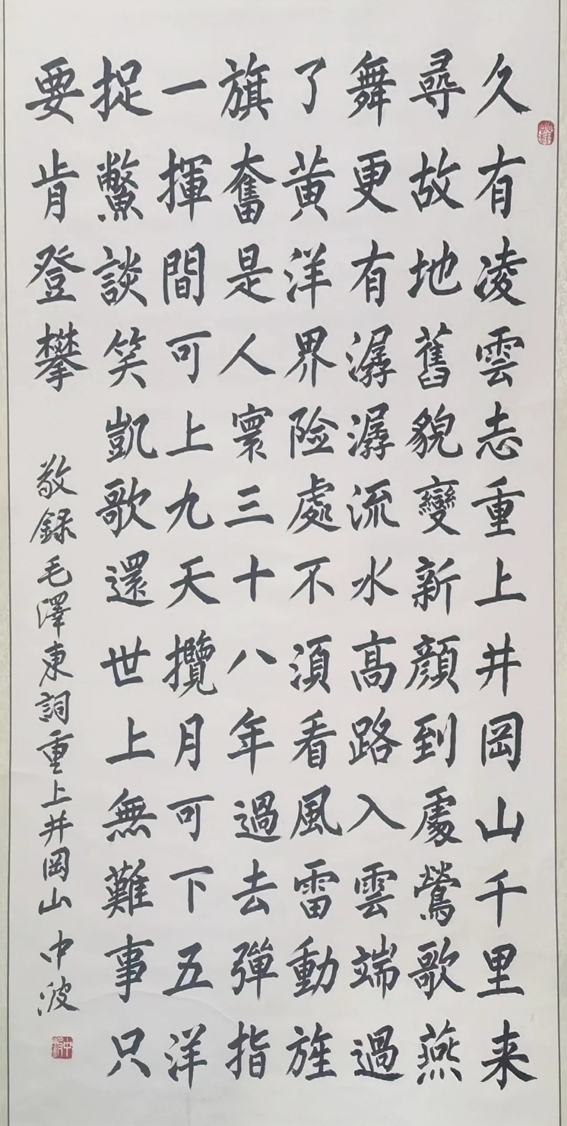 久有凌雲志重上井岡山千里来
尋故地舊貌變新顔到處鶯歌燕
舞更有潺潺流水高路入雲端過
了黄洋界险處不須看風雷動旌
旗奮是人寰三十八年過去彈指
一揮間可上九天攬月可下五洋
捉鱉談笑凱歌還世上無難事只
要肯登攀
敬録毛澤東詞重上井岡山 中波